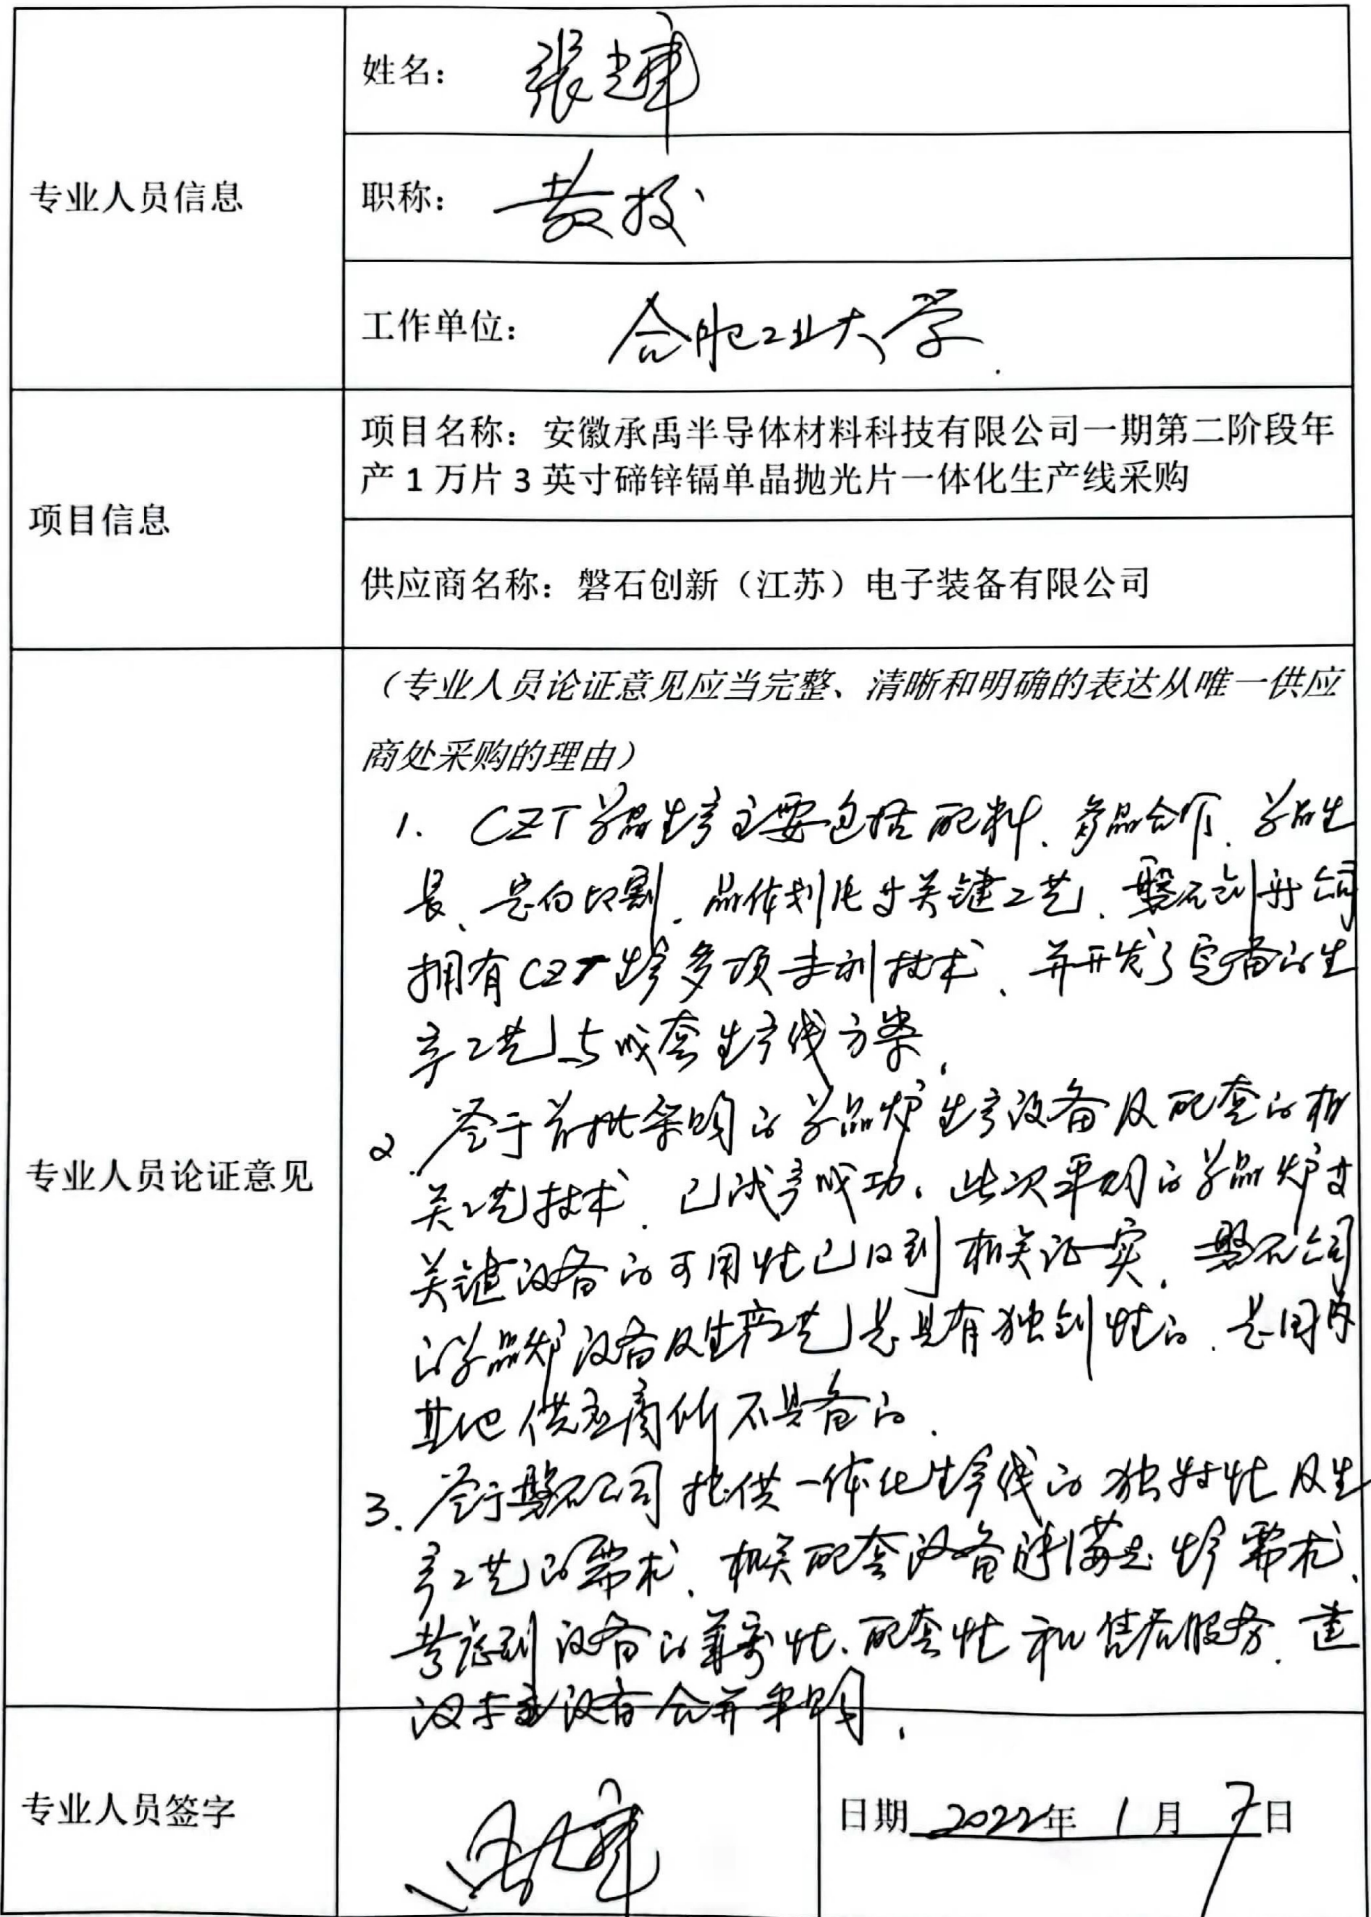 专业人员信息
姓名：張辉
职称：教授
工作单位：合肥工业大学.
项目信息
项目名称：安徽承禹半导体材料科技有限公司一期第二阶段年
产 1 万片 3 英寸碲锌镉单晶抛光片一体化生产线采购
供应商名称：磐石创新（江苏）电子装备有限公司
专业人员论证意见
（专业人员论证意见应当完整、清晰和明确的表达从唯一供应
商处采购的理由）
1. CZT单晶生产主要包括配料、多晶合成、单晶生
长、定向切割、晶体划片等关键工艺、磐石创新公司
拥有CZT生产多项专利技术、并开发了完备的生
产工艺与成套生产线方案.
2. 鉴于首批采购的单晶炉生产设备及配套的相
关工艺技术、已试产成功、此次采购的单晶炉等
关键设备的可用性已得到相关证实、磐石公司
的单晶炉设备及生产工艺是具有独创性的、是国内
其他供应商所不具备的.
3. 鉴于磐石公司提供一体化生产线的独特性及生
产工艺的需求、相关配套设备满足生产需求、
考虑到设备的兼容性、配套性和售后服务、建
议与主设备合并采购.
专业人员签字
日期 2022年 1 月 7日